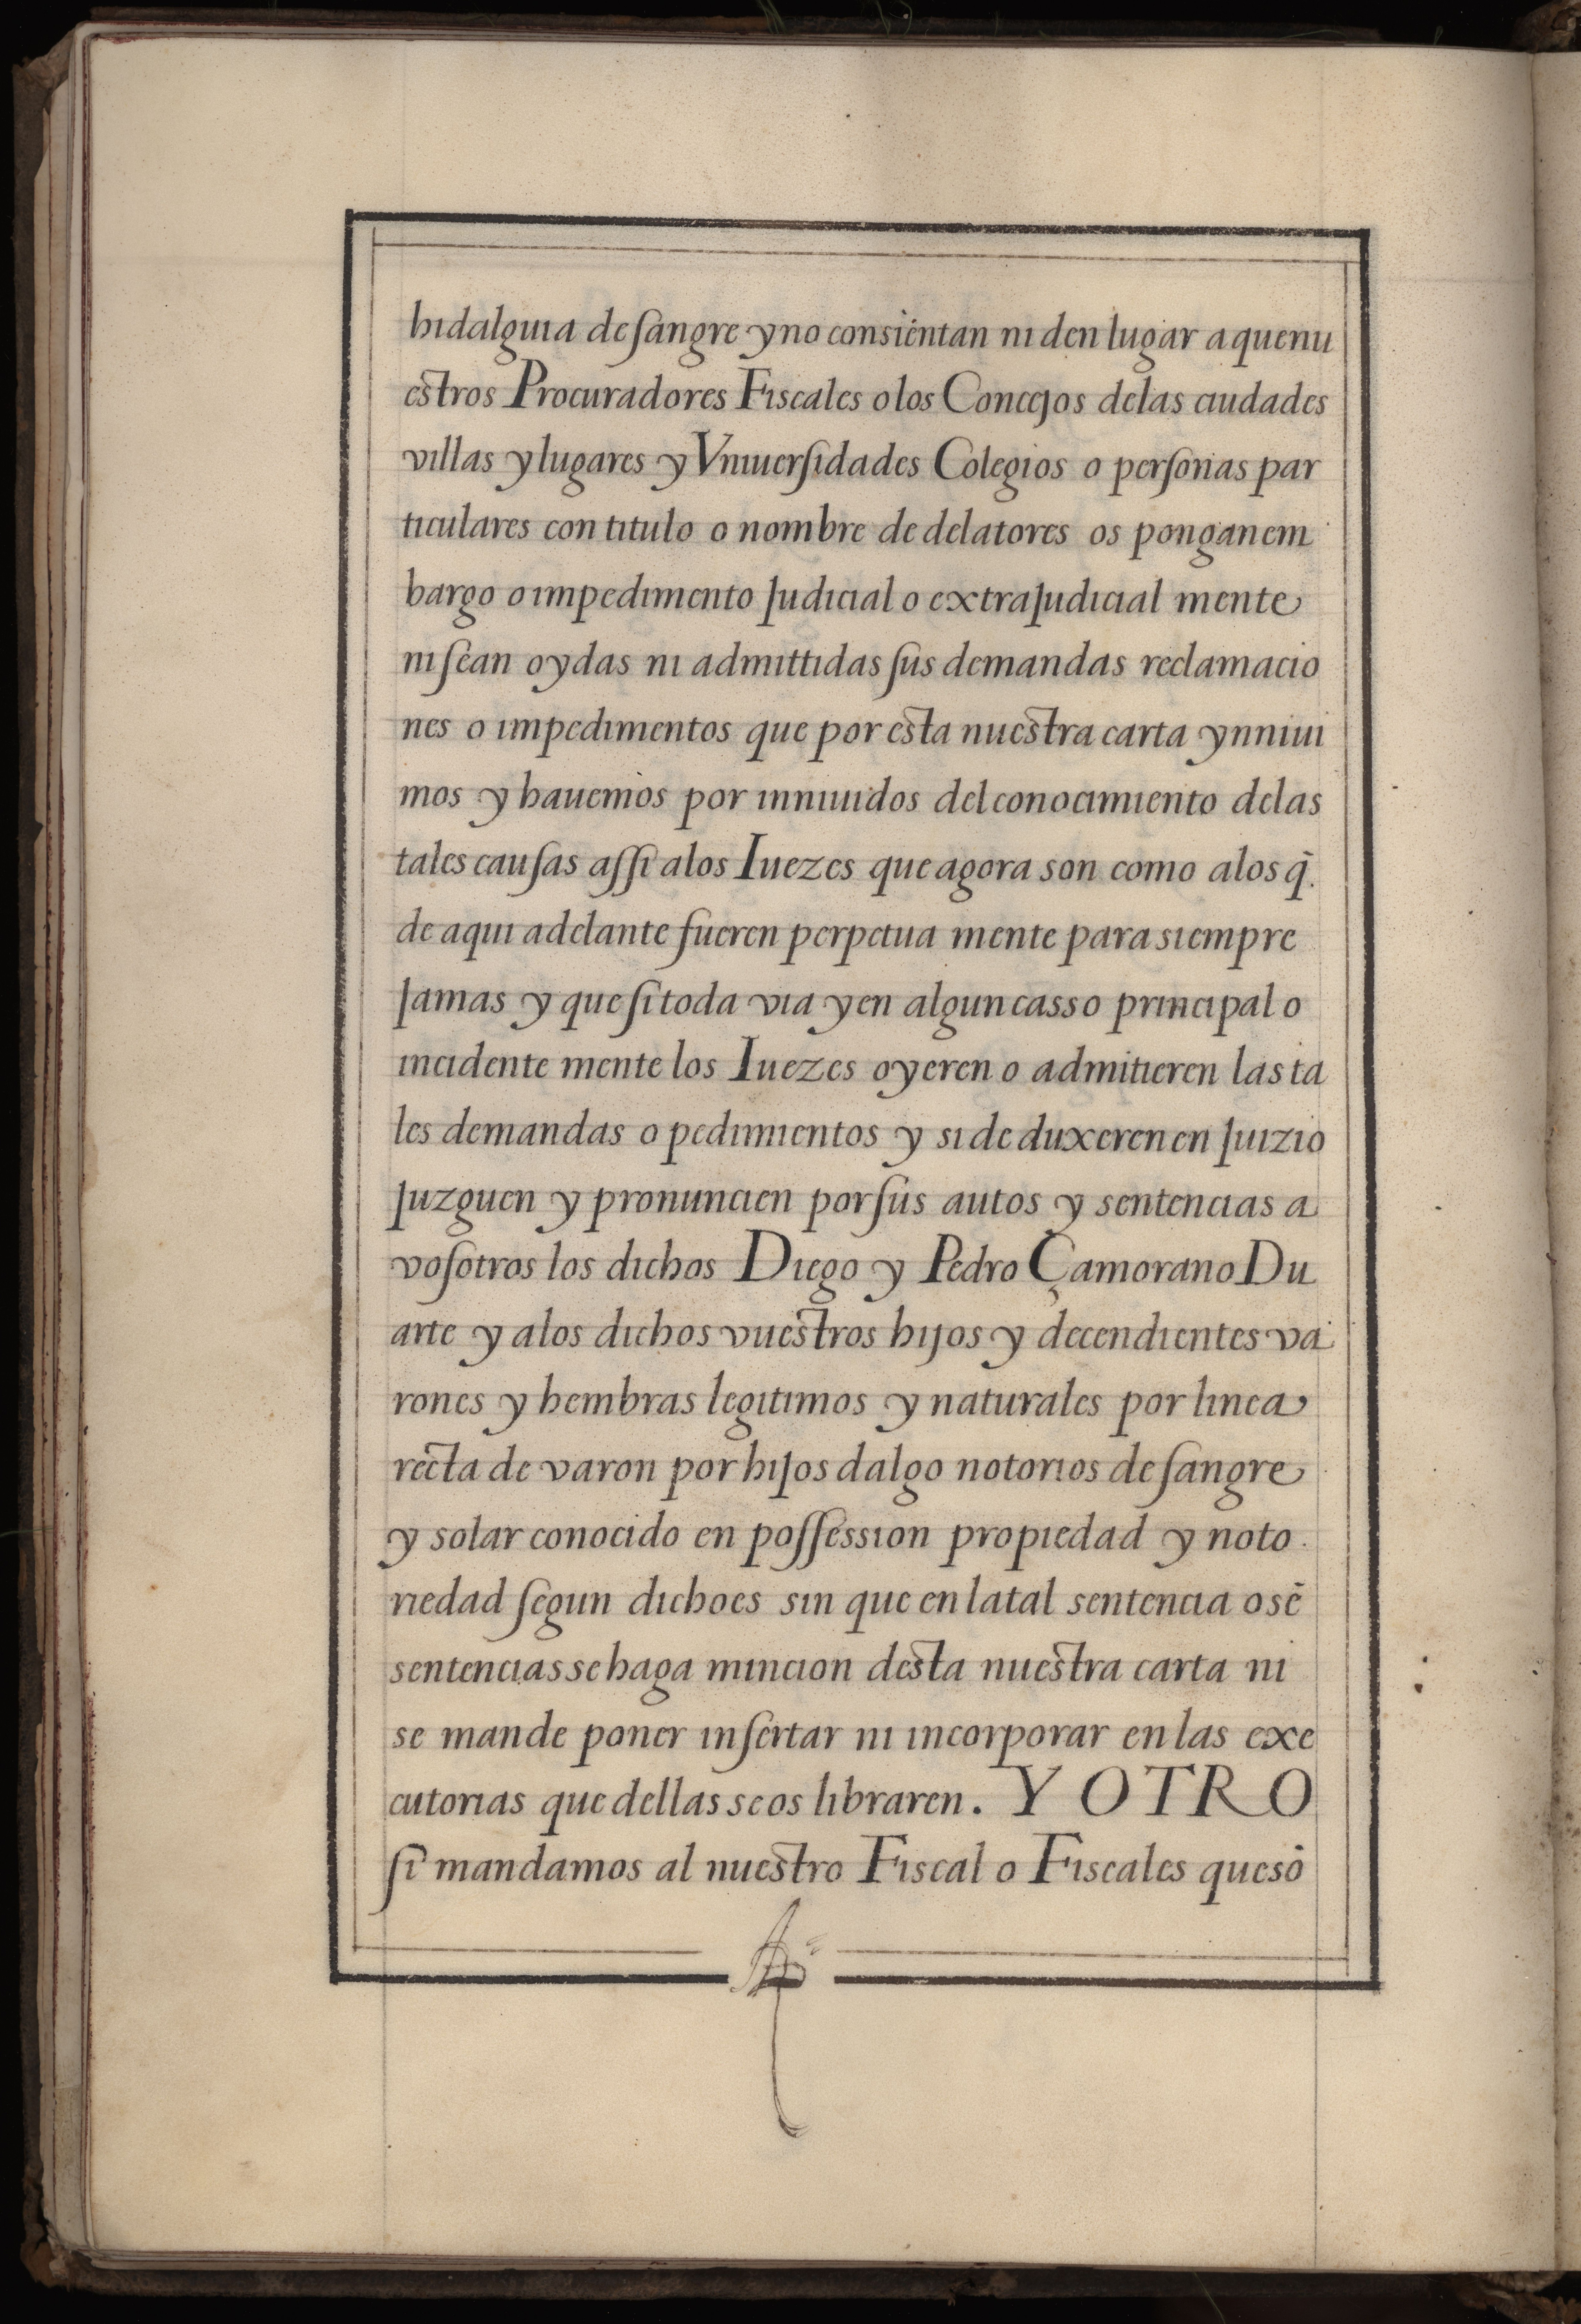 hidalguia de ſangre y no consientan ni den lugar a que nu
estros Procuradores Fiscales o los Concejos de las ciudades
villas y lugares y Vniuerſidades Colegios o perſonas par
ticulares con titulo o nombre de delatores os pongan em
bargo o impedimento Judicial o extraJudicial mente
ni ſean oydas ni admittidas ſus demandas reclamacio
nes o impedimentos que por esta nuestra carta ynniui
mos y hauemos por inniuidos del conocimiento de las
tales cauſas aſſi a los Iuezes que agora son como a los q̃.
de aqui adelante fueren perpetua mente para siempre
Jamas y que ſi toda via y en algun casso principal o
incidente mente los Iuezes oyeren o admitieren las ta
les demandas o pedimientos y si de duxeren en Juizio
Juzguen y pronuncien por ſus autos y sentencias a
voſotros los dichos Diego y Pedro Çamorano Du
arte y a los dichos vuestros hijos y decendientes va
rones y hembras legitimos y naturales por linea
recta de varon por hiJos dalgo notorios de ſangre
y solar conocido en poſſession propiedad y noto
riedad ſegun dicho es sin que en la tal sentencia o sẽ
sentencias se haga mincion desta nuestra carta ni
se mande poner inſertar ni incorporar en las exe
cutorias que dellas se os libraren. Y OTRO
ſi mandamos al nuestro Fiscal o Fiscales que sõ